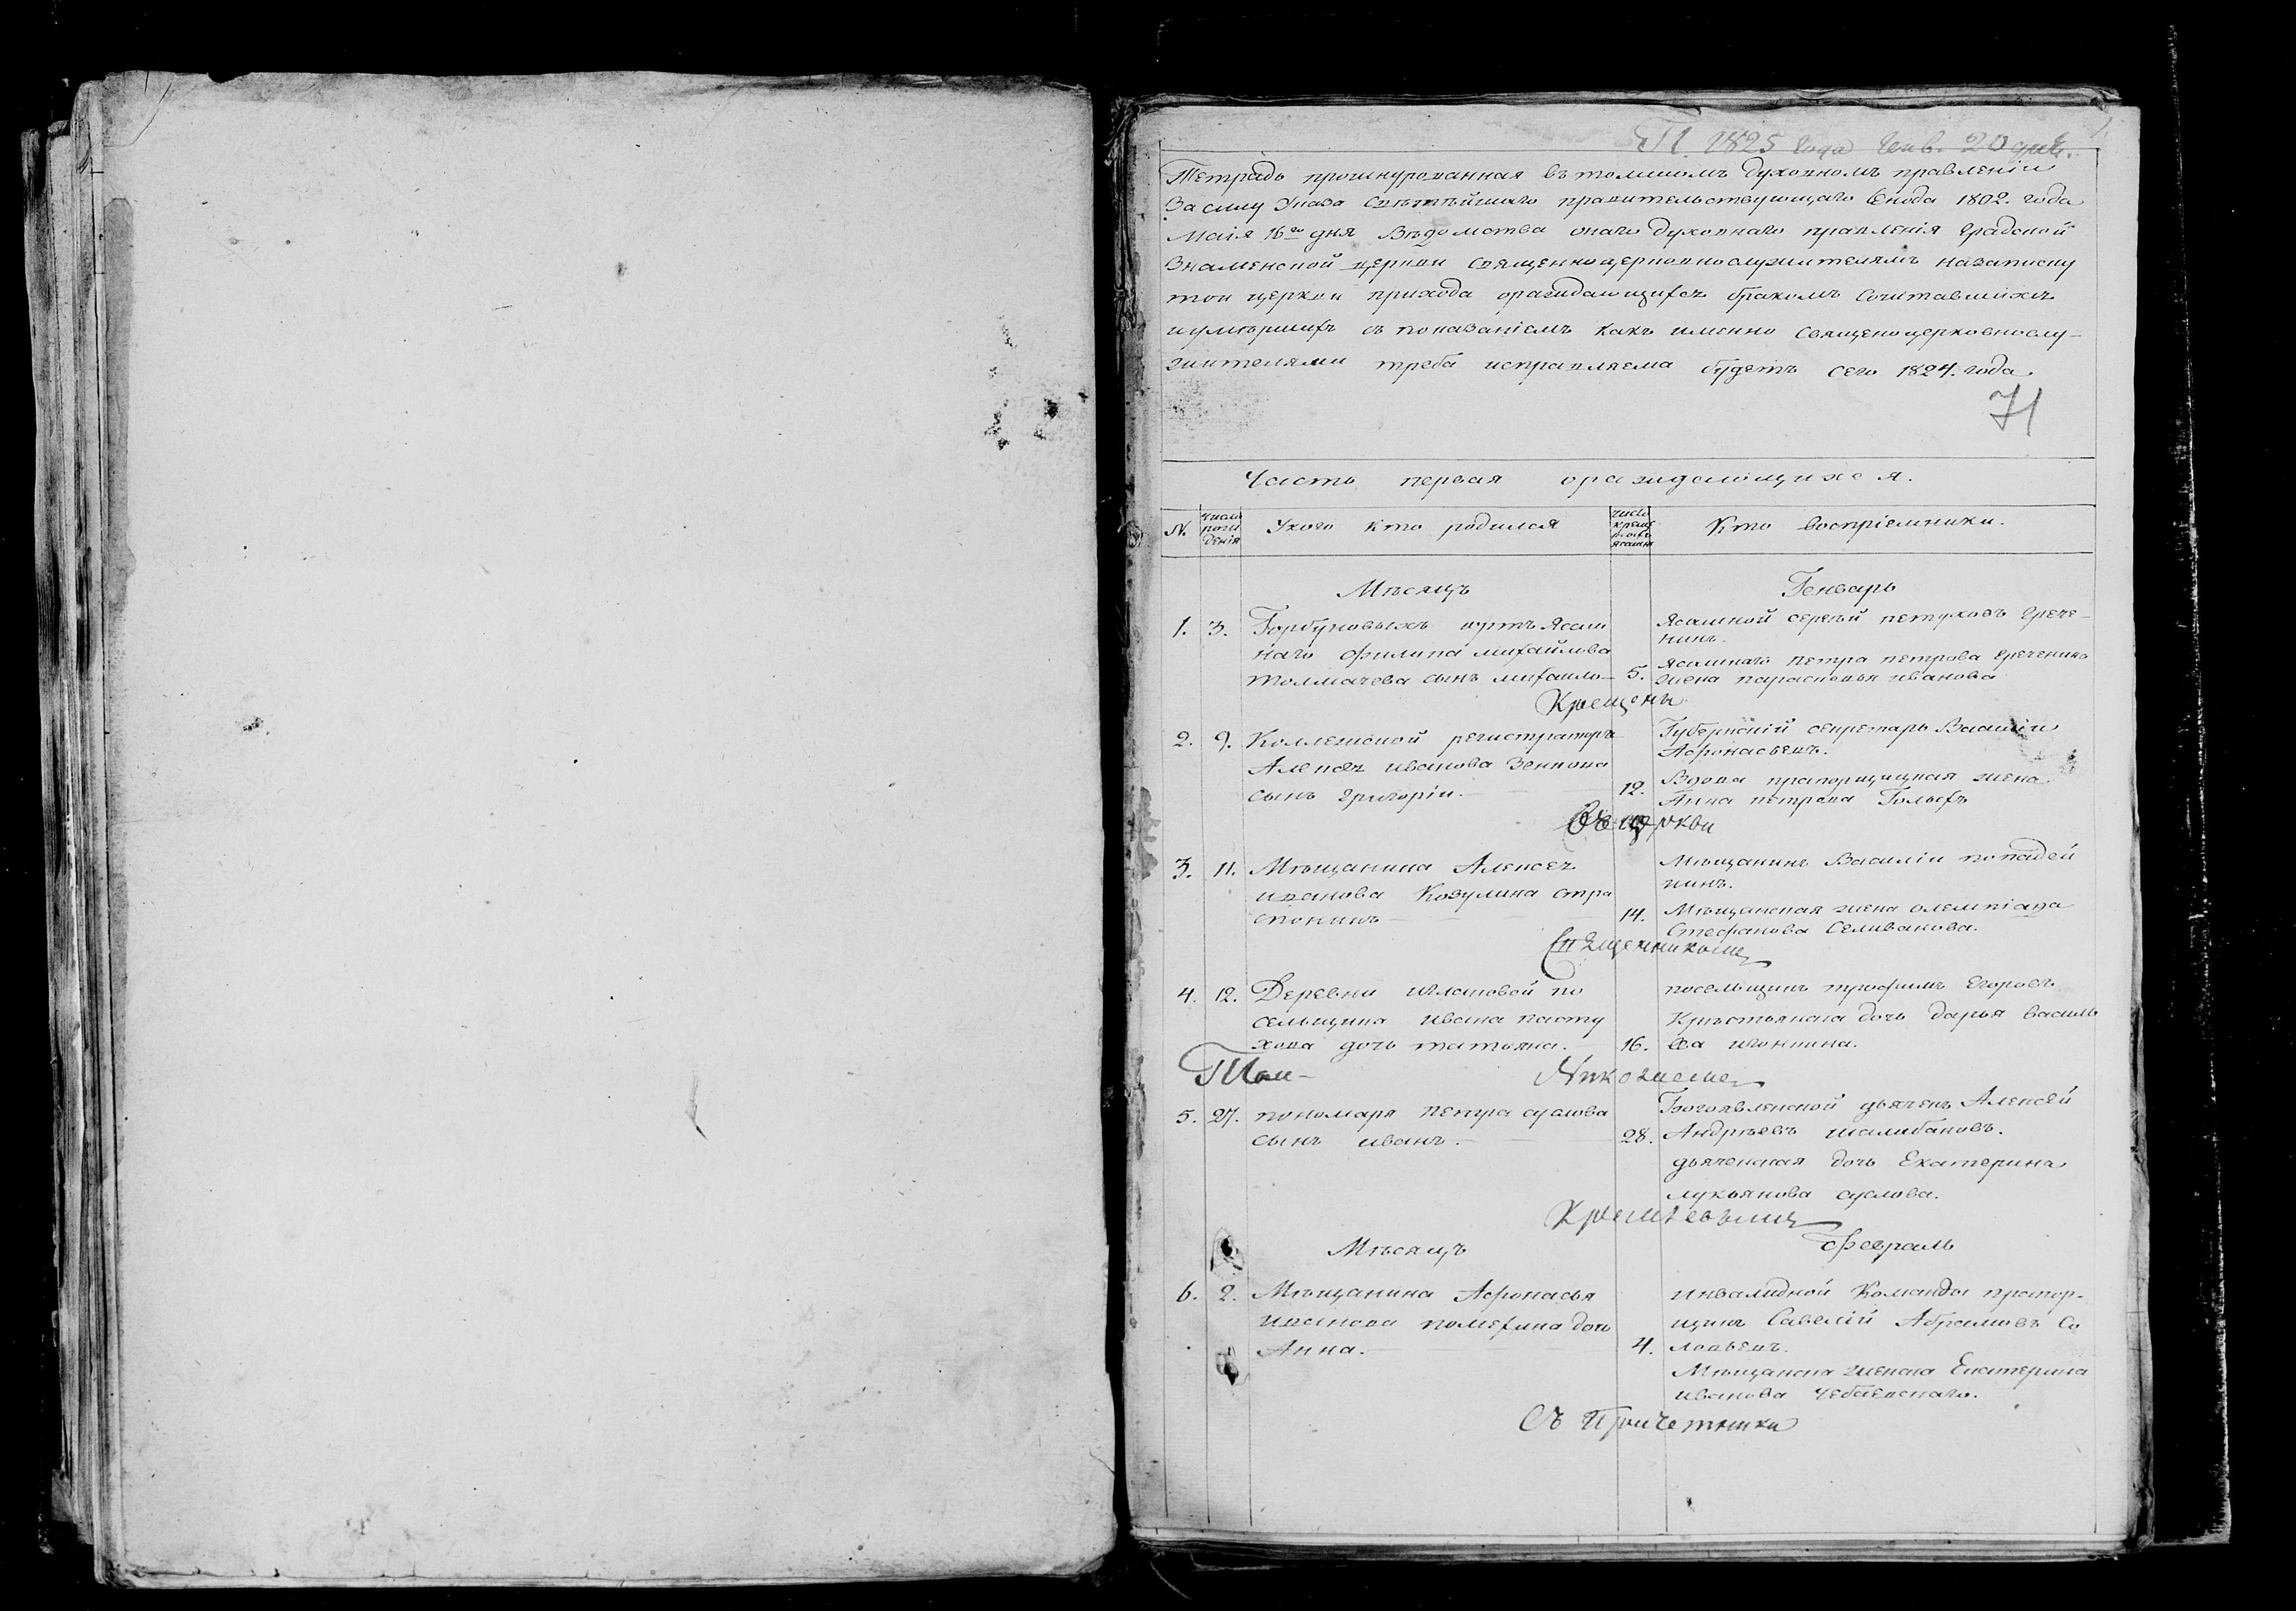 П. 1825 года Генв. 20 дня.
Тетрадь прошнурованная въ томскомъ духовномъ правленіи
Въ силу Указа Святѣйшаго правительствующаго Сѵнода 1802. года
Маія 16го дня Вѣдомства онаго духовнаго правленія градской
Знаменской церкви священноцерковнослужителямъ на записку
той церкви прихода ораждающихся бракомъ сочетавшихся
и умѣршихъ съ показаніемъ какъ именно священоцерковнослу-
жителями треба исправляема будетъ сего 1824. года.
71
Часть первая ораждающихся.
N. Число рожденія У кого кто родился число Кто воспріемники.
Мѣсяцъ Генварь
1. 3. Горбуновыхъ юртъ Ясаш
наго Филипа михайлова
толмачева сынъ михаило 5.
Ясашной сергѣй петуховъ гаче-
нинъ.
Ясашнаго петра петрова
жена парасковья иванова
Крещены
2. 9. Коллежской регистраторъ
Алексѣя иванова Зенкова
сынъ григоріи. 12.
Губернскій секретарь Василіи
Афонасьевъ.
Вдова прапорщицкая жена
Анна петрова
Въ церкви
3. 11. Мѣщанина Алексѣя
иванова Козулина
14.
Мѣщанинъ Василіи попадей
кинъ.
Мѣщанская жена олемпіада
Стефанова Селиванова.
Священникомъ
4. 12. Деревни по
сельщика ивана пасту
хова дочь татьяна. 16.
посельщикъ трофимъ Егоровъ
Крѣстьянская дочь дарья василь
ева
Іоан- Никоиемъ
5. 27. пономаря петра суслова
сынъ иванъ. 28.
Богоявленской дьячекъ Алексѣй
Андрѣевъ шалабановъ.
дьяческая дочь Екатерина
лукьянова суслова.
Мѣсяцъ Февраль
6. 2. Мѣщанина Афонасья
иванова дочь
Анна. 4.
инвалидной команды прапор-
щикъ Савелій Абрамовъ Со
ловьевъ.
Мѣщанска женка Екатерина
иванова
Съ Причетники